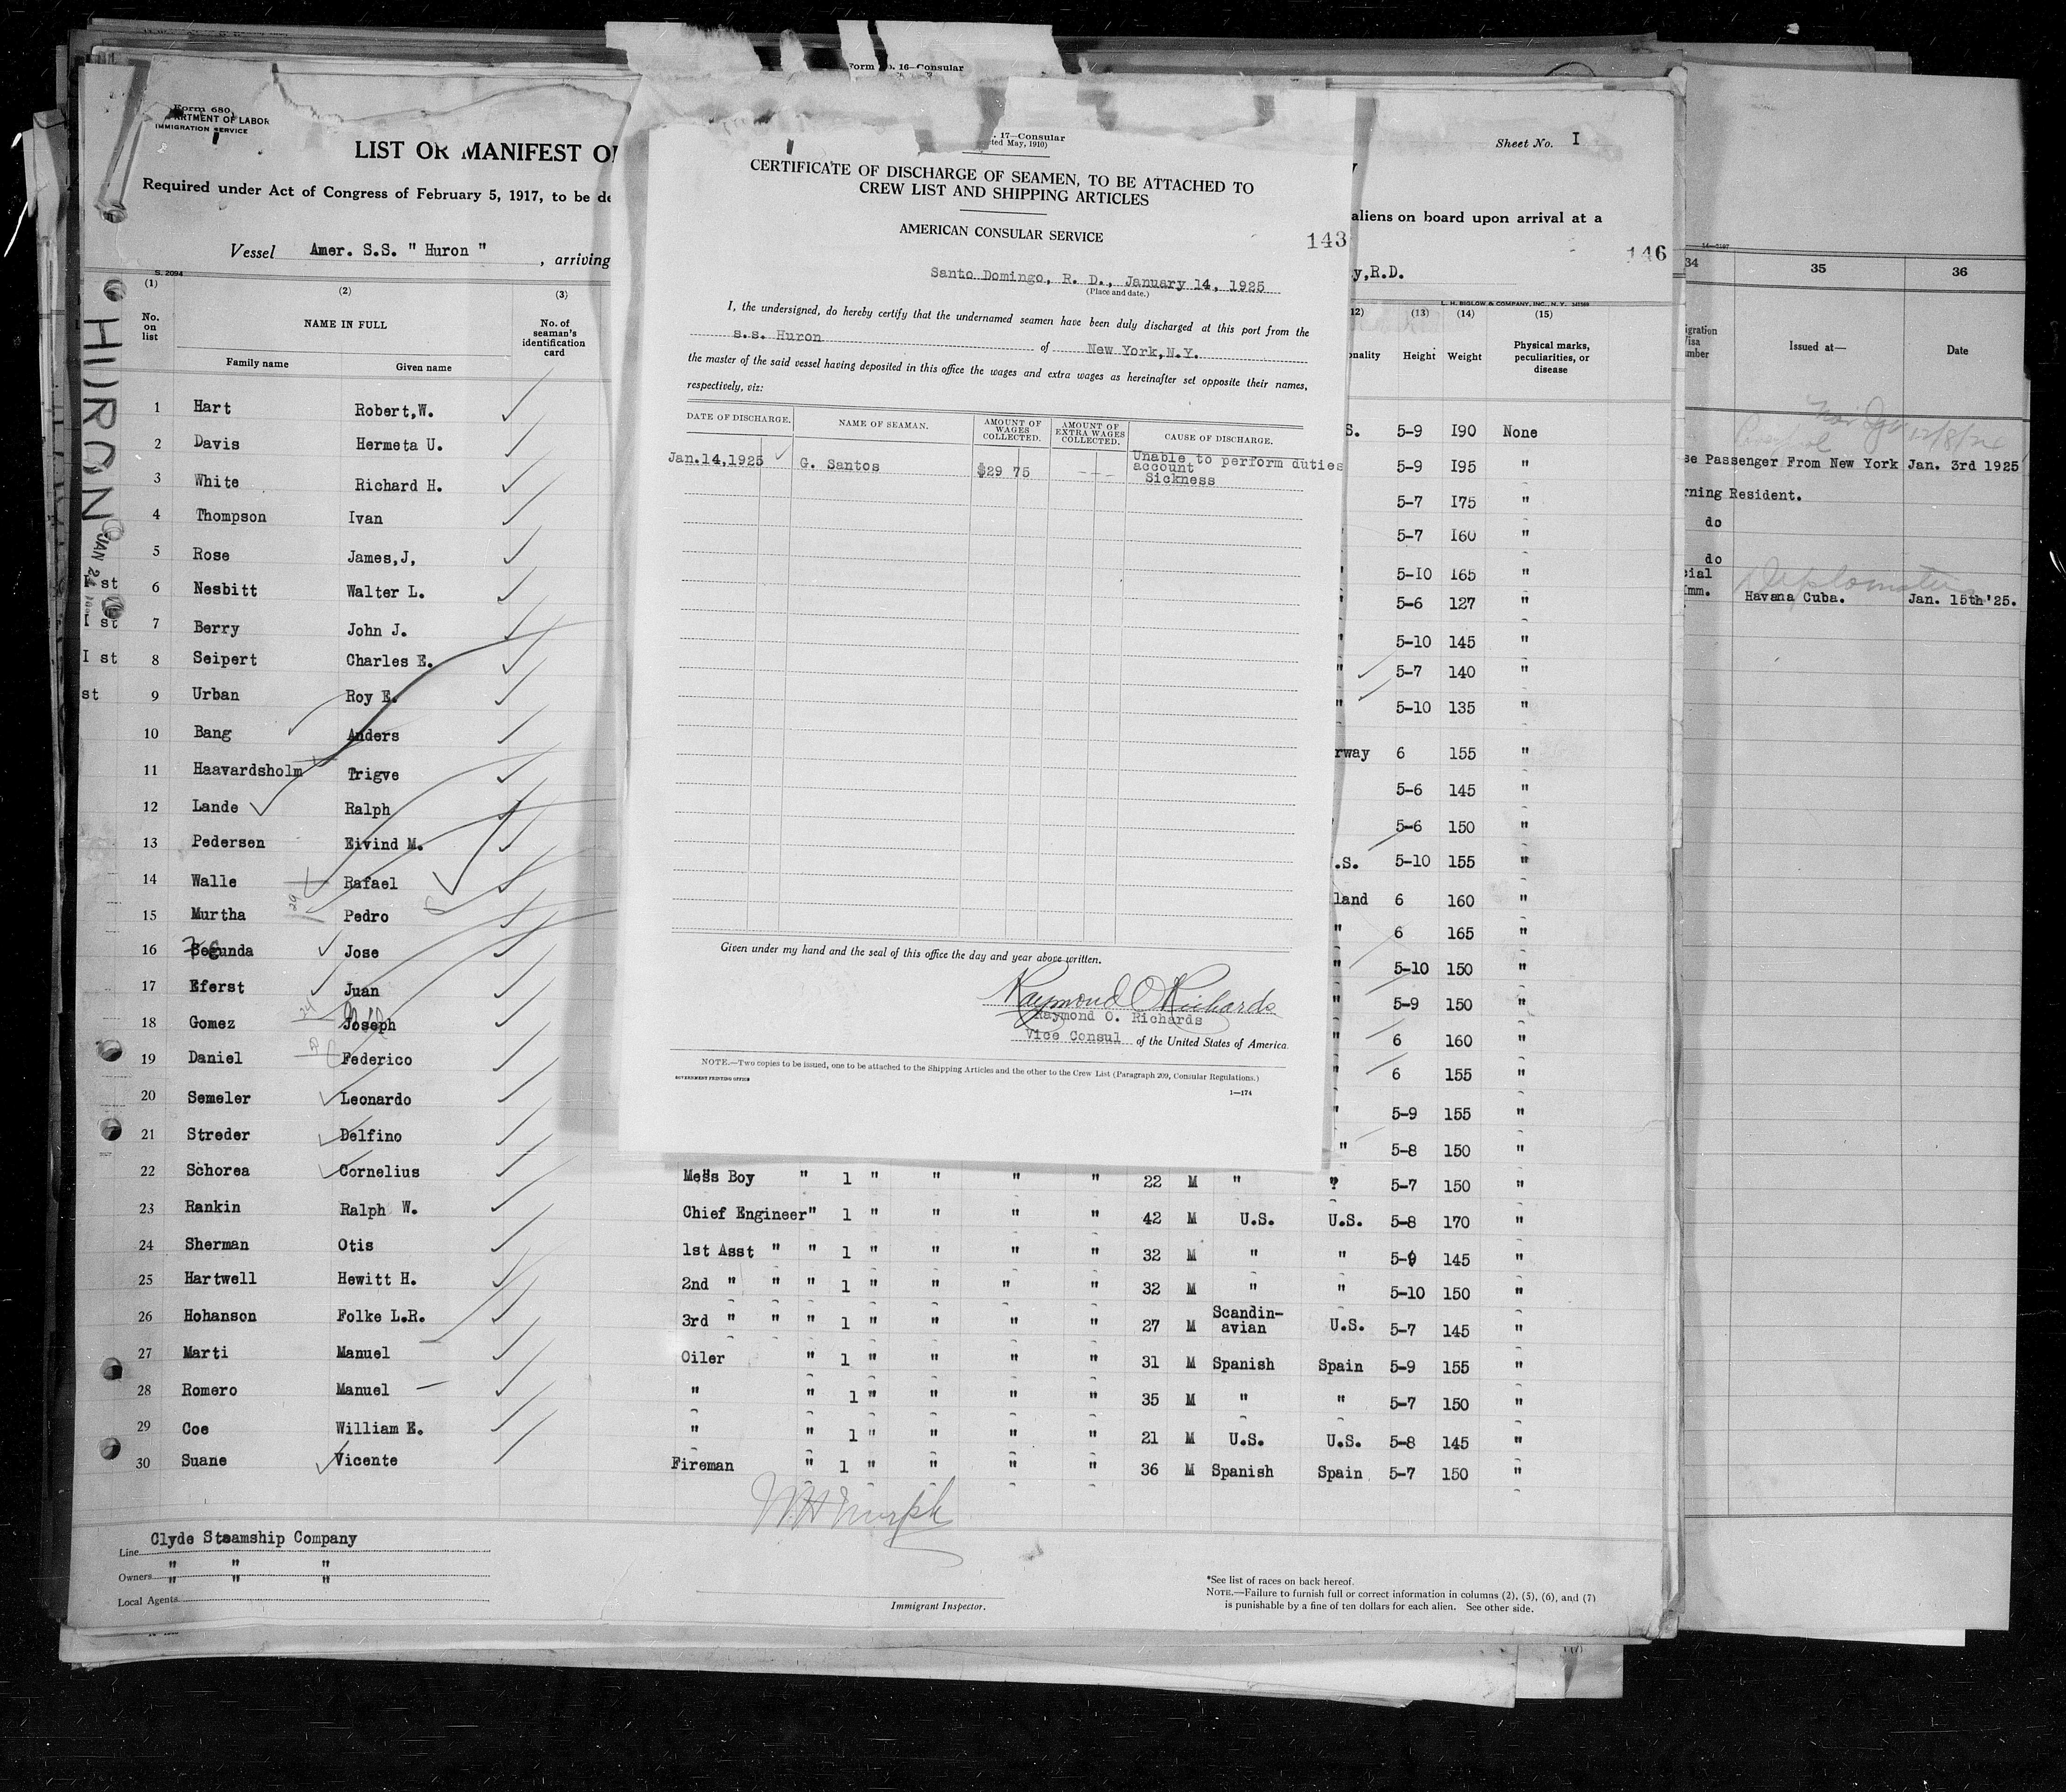 Form No. 16—Consular
Form 680
DEPARTMENT OF LABOR
IMMIGRATION SERVICE
LIST OR MANIFEST OF
Required under Act of Congress of February 5, 1917, to be de
Vessel Amer. S.S. " Huron " , arriving
Sheet No. I
aliens on board upon arrival at a
146
y,R.D.
S. 2094
L. H. BIGLOW & COMPANY, INC., N. Y.
HURON
JAN 24
(1) (2) (3)
No. on list
NAME IN FULL
Family name Given name
No. of seaman's identification card
12) (13) (14) (15)
onality Height Weight Physical marks, peculiarities, or disease
1 Hart Robert,W. S. 5-9 I90 None
2 Davis Hermeta U. 5-9 I95 "
3 White Richard H. 5-7 I75 "
4 Thompson Ivan 5-7 I60 "
5 Rose James,J, " 5-IO I65 "
I st 6 Nesbitt Walter L. " 5-6 127 "
I st 7 Berry John J. " 5-10 145 "
I st 8 Seipert Charles E. " 5-7 140 "
st 9 Urban Roy E. " 5-10 135 "
10 Bang Anders rway 6 155 "
11 Haavardsholm Trigve 5-6 145 "
12 Lande Ralph 5-6 150 "
13 Pedersen Eivind M. .S. 5-10 155 "
14 Walle Rafael land 6 160 "
15 Murtha Pedro " 6 165 "
16 Segunda Jose " 5-10 150 "
17 Eferst Juan " 5-9 150 "
18 Gomez Joseph " 6 160 "
19 Daniel Federico " 6 155 "
20 Semeler Leonardo " 5-9 155 "
21 Streder Delfino " 5-8 150 "
22 Schorea Cornelius Mess Boy " 1 " " " " 22 M " ? 5-7 150 "
23 Rankin Ralph W. Chief Engineer" 1 " " " " 42 M U.S. U.S. 5-8 170 "
24 Sherman Otis 1st Asst " " 1 " " " " 32 M " " 5-9 145 "
25 Hartwell Hewitt H. 2nd " " " 1 " " " " 32 M " " 5-10 150 "
26 Hohanson Folke L.R. 3rd " " " 1 " " " " 27 M Scandin-avian U.S. 5-7 145 "
27 Marti Manuel Oiler " 1 " " " " 31 M Spanish Spain 5-9 155 "
28 Romero Manuel " " 1 " " " " 35 M " " 5-7 150 "
29 Coe William E. " " 1 " " " " 21 M U.S. U.S. 5-8 145 "
30 Suane Vicente Fireman " 1 " " " " 36 M Spanish Spain 5-7 150 "
Line Clyde Steamship Company
Owners " " "
Local Agents " " "
Immigrant Inspector.
*See list of races on back hereof.
NOTE.—Failure to furnish full or correct information in columns (2), (5), (6), and (7)
is punishable by a fine of ten dollars for each alien. See other side.
. 17—Consular
ted May, 1910)
CERTIFICATE OF DISCHARGE OF SEAMEN, TO BE ATTACHED TO
CREW LIST AND SHIPPING ARTICLES
AMERICAN CONSULAR SERVICE
143
Santo Domingo, R. D., January 14, 1925
(Place and date.)
I, the undersigned, do hereby certify that the undernamed seamen have been duly discharged at this port from the
s.s. Huron of New York,N.Y.
the master of the said vessel having deposited in this office the wages and extra wages as hereinafter set opposite their names,
respectively, viz:
DATE OF DISCHARGE. NAME OF SEAMAN. AMOUNT OF WAGES COLLECTED. AMOUNT OF EXTRA WAGES COLLECTED. CAUSE OF DISCHARGE.
Jan.14,1925 G. Santos $29 75 --- Unable to perform duties
account
Sickness
Given under my hand and the seal of this office the day and year above written.
Raymond O Richards
Raymond O. Richards
Vice Consul of the United States of America.
NOTE.—Two copies to be issued, one to be attached to the Shipping Articles and the other to the Crew List (Paragraph 209, Consular Regulations.)
GOVERNMENT PRINTING OFFICE
1—174
34 35 36
igration Visa umber Issued at— Date
12/8/24
se Passenger From New York Jan. 3rd 1925
rning Resident.
do
do
cial
Imm.
Diplomatic
Havana Cuba. Jan. 15th'25.